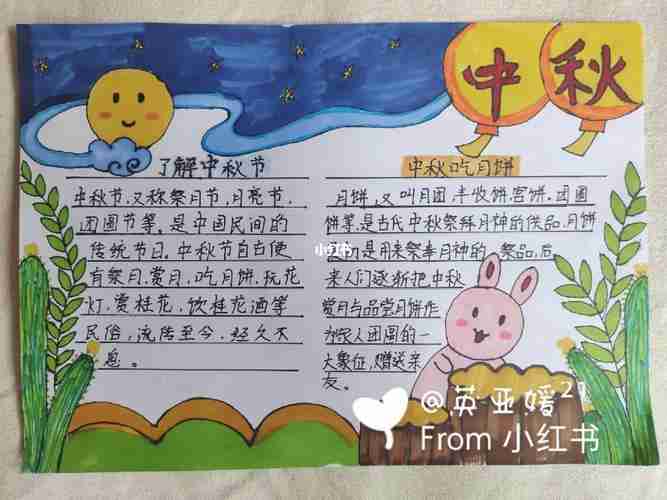 中秋
了解中秋节
中秋节,又称祭月节,月亮节,
团圆节等。是中国民间的
传统节日。中秋节自古便
有祭月,赏月,吃月饼,玩花
灯,赏桂花,饮桂花酒等
民俗,流传至今,经久不
息。
中秋吃月饼
月饼,又叫月团丰收饼,宫饼,团圆
饼等,是古代中秋祭拜月神的供品,月饼
是用来祭奉月神的,祭品,后
来人们逐渐把中秋
赏月与品尝月饼作
为家人团圆的一
大象征,赠送亲
友。
小红书
@英亚媛²¹
From 小红书